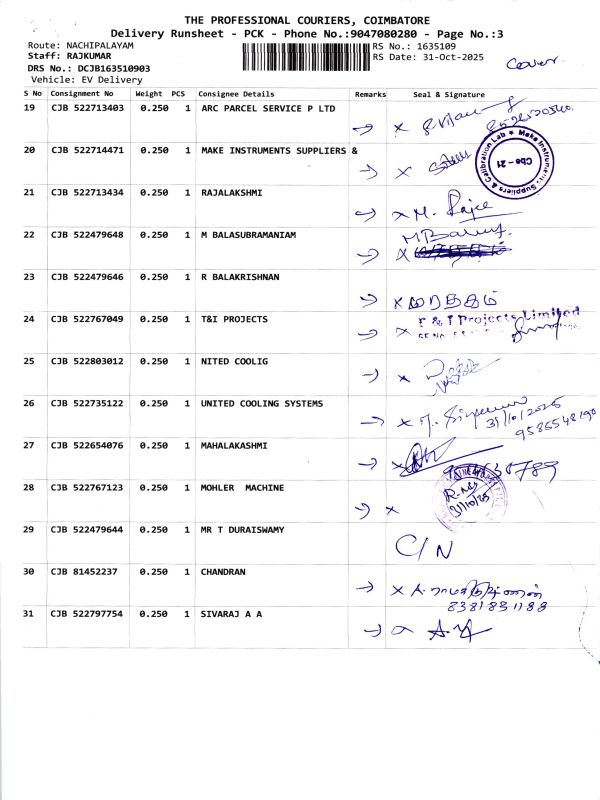 THE PROFESSIONAL COURIERS, COIMBATORE
Delivery Runsheet - PCK - Phone No.:9047080280 - Page No.:3
Route: NACHIPALAYAM
RS No.: 1635109
Staff: RAJKUMAR
RS Date: 31-Oct-2025
DRS No.: DCJB163510903
Vehicle: EV Delivery
S No Consignment No Weight PCS Consignee Details Remarks Seal & Signature
19 CJB 522713403 0.250 1 ARC PARCEL SERVICE P LTD
20 CJB 522714471 0.250 1 MAKE INSTRUMENTS SUPPLIERS &
Make Instruments Suppliers & Calibration Lab
Cbe - 21
21 CJB 522713434 0.250 1 RAJALAKSHMI
22 CJB 522479648 0.250 1 M BALASUBRAMANIAM
23 CJB 522479646 0.250 1 R BALAKRISHNAN
24 CJB 522767049 0.250 1 T&I PROJECTS
T & I Projects Limited
25 CJB 522803012 0.250 1 NITED COOLIG
26 CJB 522735122 0.250 1 UNITED COOLING SYSTEMS
31/10/2025
27 CJB 522654076 0.250 1 MAHALAKASHMI
28 CJB 522767123 0.250 1 MOHLER MACHINE
31/10/25
29 CJB 522479644 0.250 1 MR T DURAISWAMY C/N
30 CJB 81452237 0.250 1 CHANDRAN
31 CJB 522797754 0.250 1 SIVARAJ A A